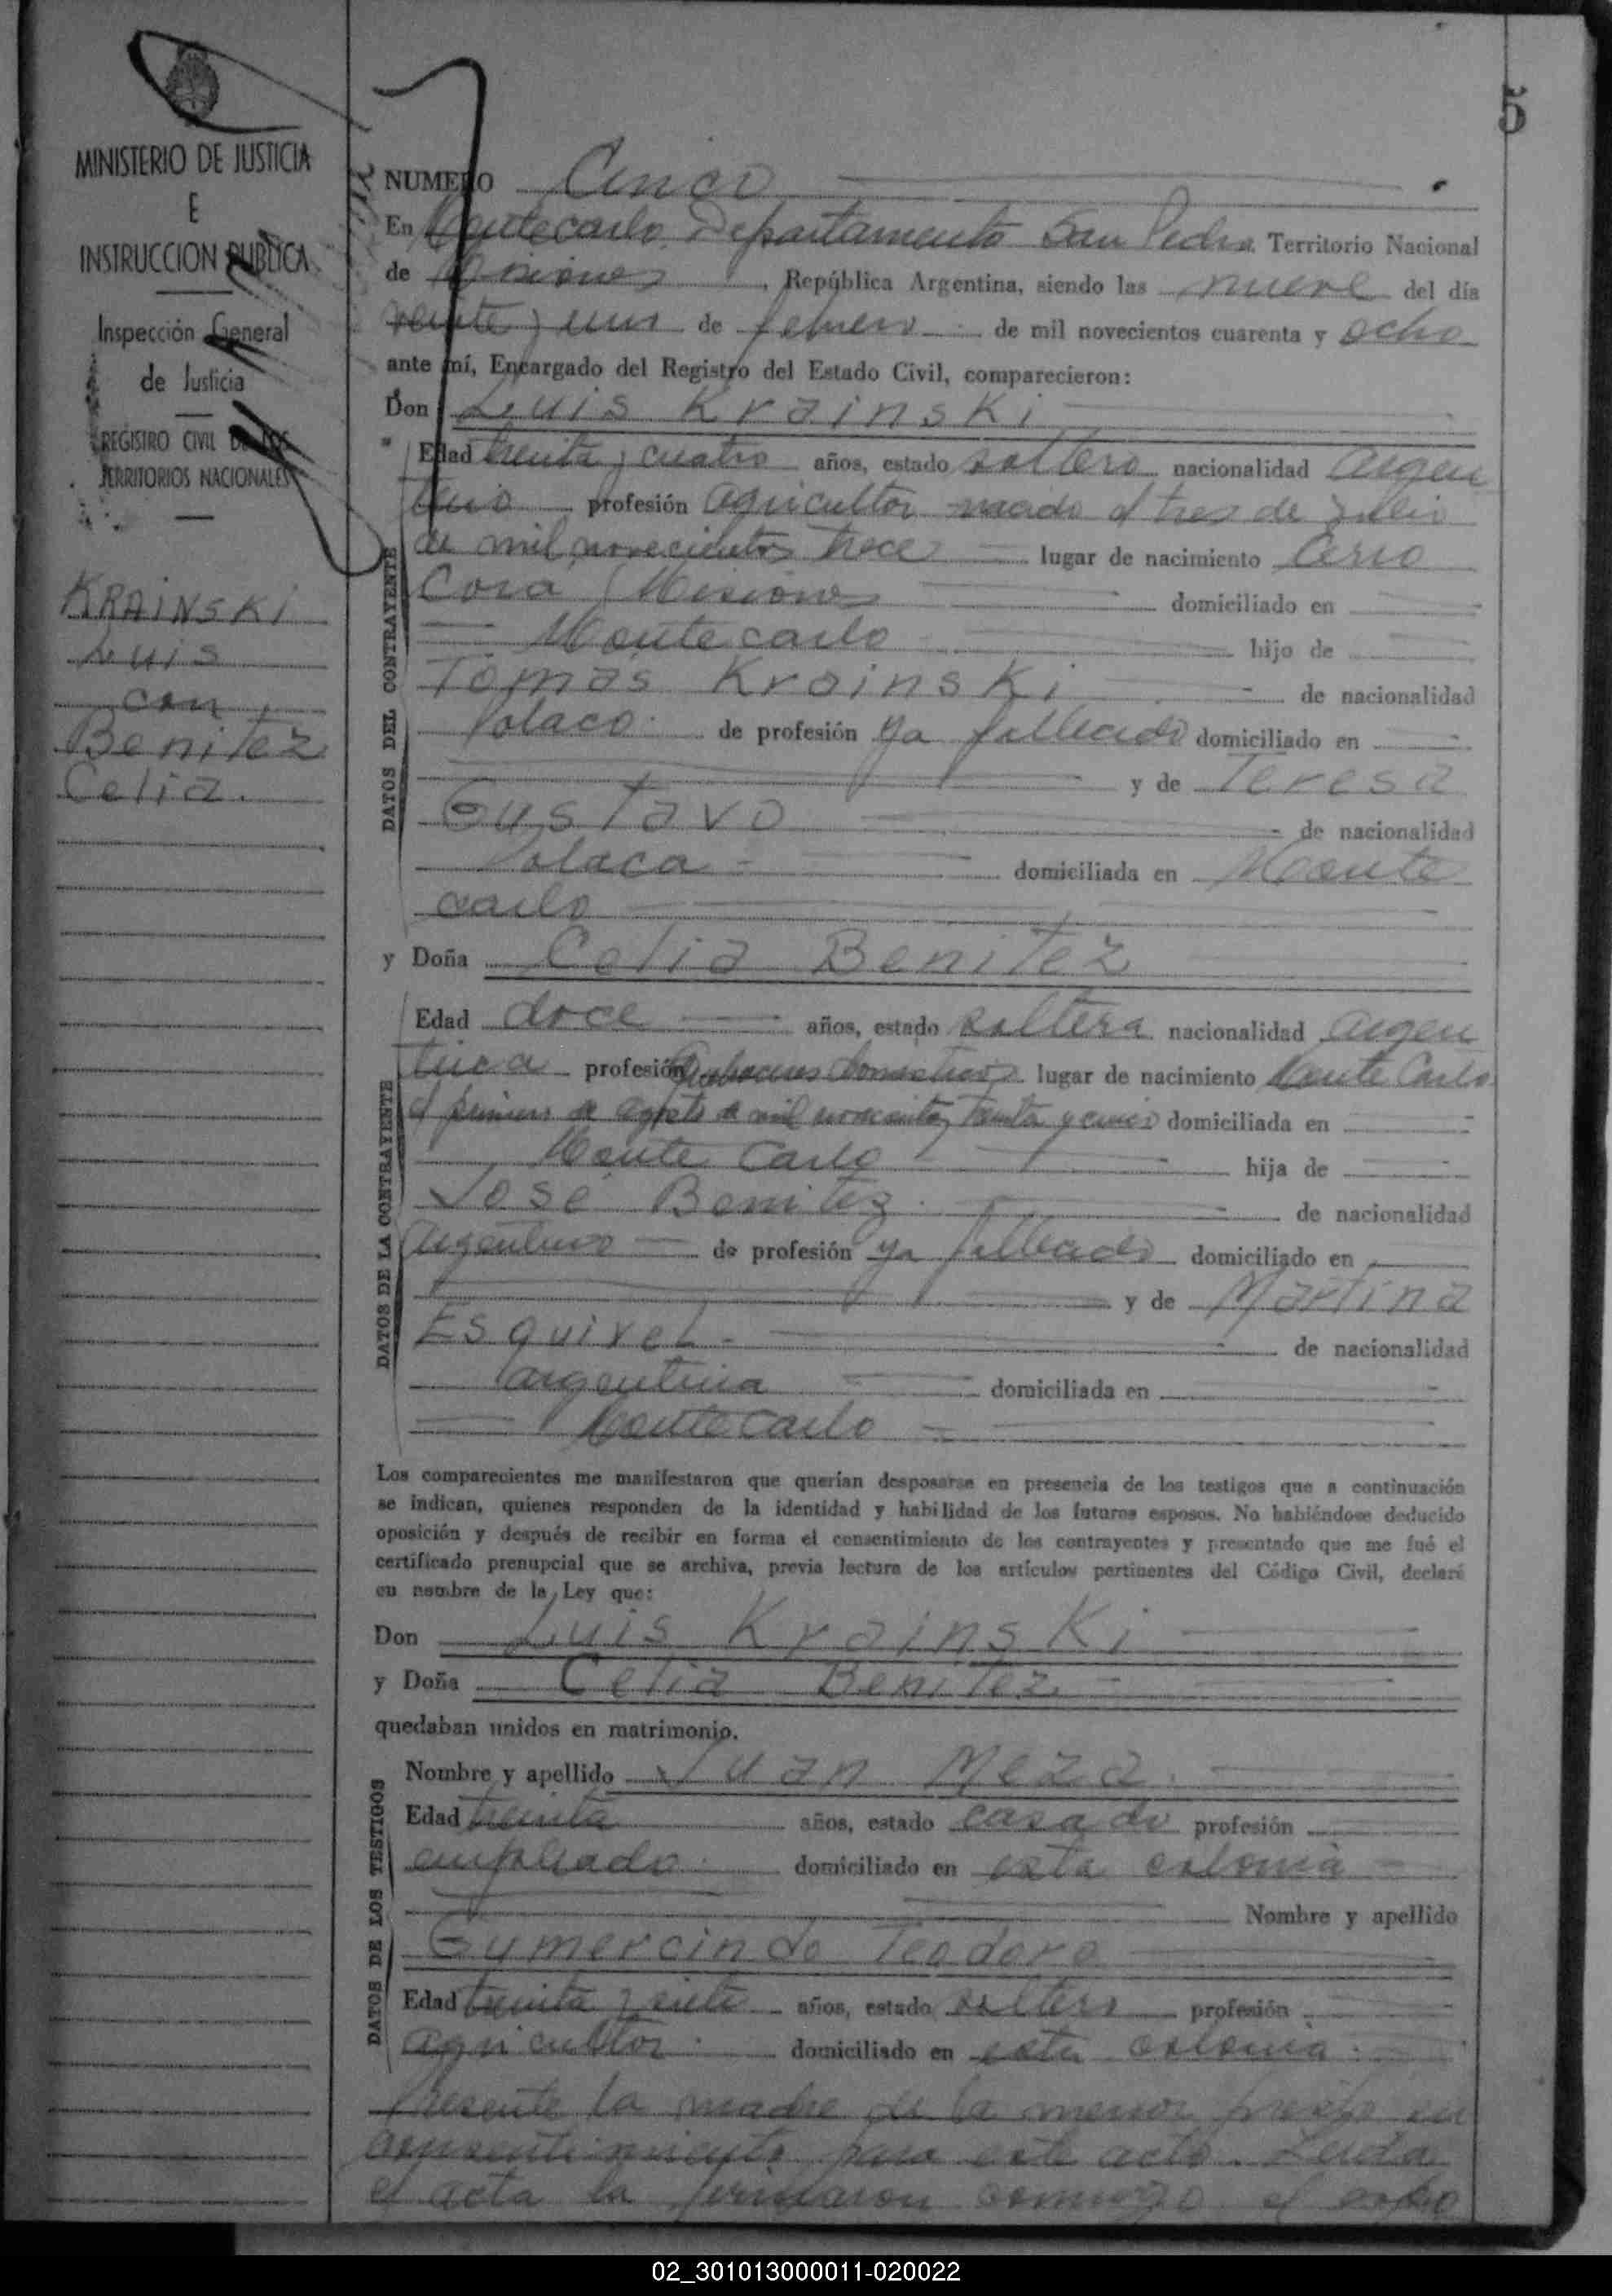 5
MINISTERIO DE JUSTICIA
E
INSTRUCCION PUBLICA
Inspección General
de Justicia
REGISTRO CIVIL DE LOS
TERRITORIOS NACIONALES
KRAINSKI
Luis
con
Benitez
Celia.
NUMERO Cinco
En Montecarlo Departamento San Pedro Territorio Nacional
de Misiones, República Argentina, siendo las nueve del día
veinte y uno de febrero de mil novecientos cuarenta y ocho
ante mí, Encargado del Registro del Estado Civil, comparecieron:
Don Luis Krainski
DATOS DEL CONTRAYENTE
Edad treinta y cuatro años, estado soltero nacionalidad argen
tino profesión agricultor nacido el tres de julio
de mil novecientos trece lugar de nacimiento Cerro
Cora Misiones domiciliado en
Montecarlo hijo de
Tomás Krainski de nacionalidad
Polaco de profesión ya fallecido domiciliado en
y de Teresa
Gustavo de nacionalidad
Polaca domiciliada en Monte
carlo
y Doña Celia Benitez
DATOS DE LA CONTRAYENTE
Edad doce años, estado soltera nacionalidad argen
tina profesión Quehaceres domesticos lugar de nacimiento Monte Carlo
el primero de agosto de mil novecientos treinta y cinco domiciliada en
Monte Carlo hija de
José Benitez de nacionalidad
argentino de profesión ya fallecido domiciliado en
y de Martina
Esquivel de nacionalidad
argentina domiciliada en
Montecarlo
Los comparecientes me manifestaron que querían desposarse en presencia de los testigos que a continuación
se indican, quienes responden de la identidad y habilidad de los futuros esposos. No habiéndose deducido
oposición y después de recibir en forma el consentimiento de los contrayentes y presentado que me fué el
certificado prenupcial que se archiva, previa lectura de los artículos pertinentes del Código Civil, declaré
en nombre de la Ley que:
Don Luis Krainski
y Doña Celia Benitez
quedaban unidos en matrimonio.
DATOS DE LOS TESTIGOS
Nombre y apellido Juan Meza
Edad treinta años, estado casado profesión
empleado domiciliado en esta colonia
Nombre y apellido
Gumercindo Teodoro
Edad treinta y siete años, estado soltero profesión
agricultor domiciliado en esta colonia
Presente la madre de la menor presto su
consentimiento para este acto. Leida
el acta la firmaron conmigo el esposo
02_301013000011-020022